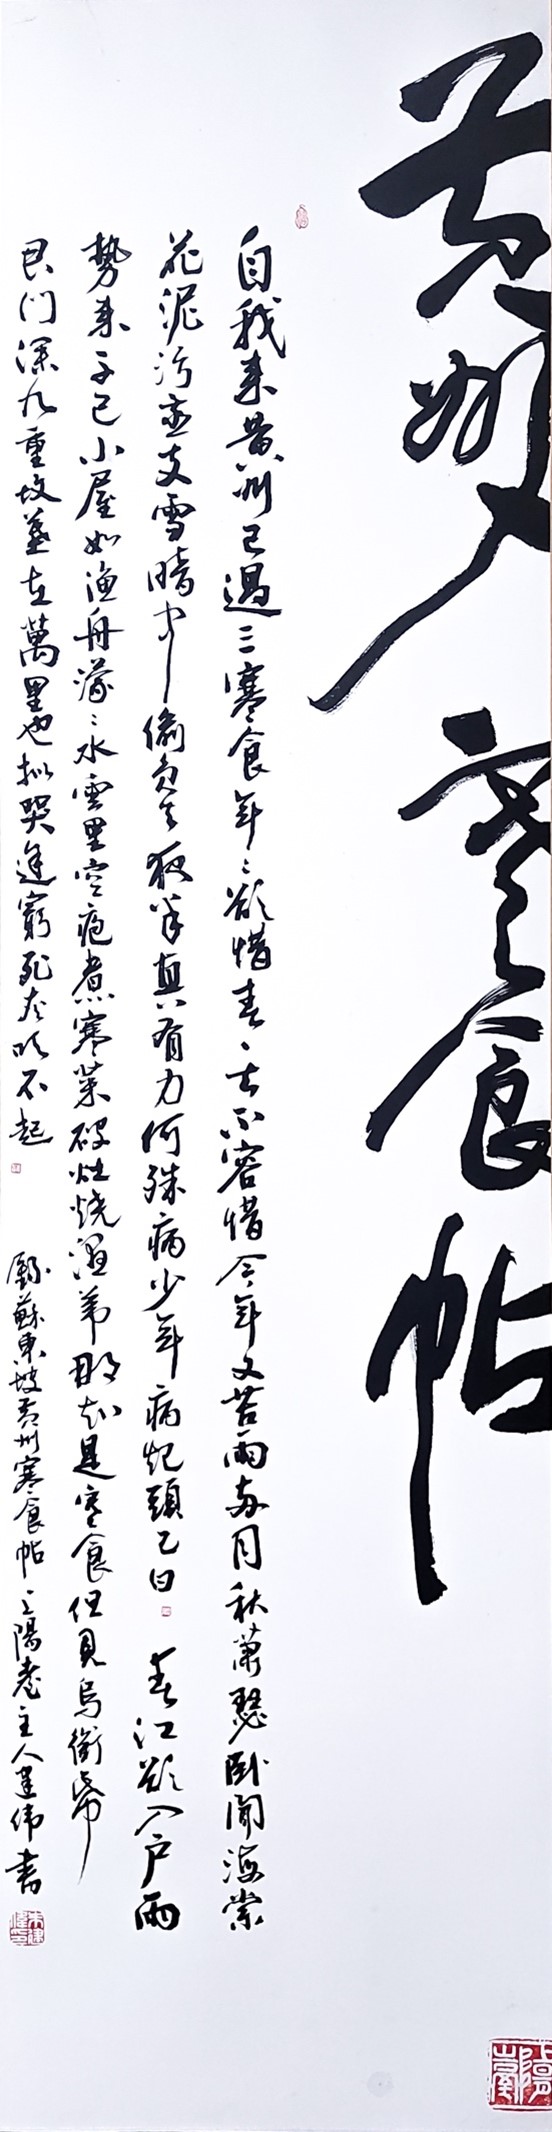 黄州寒食帖
自我来黄州已过三寒食年々欲惜春々去不容惜今年又苦雨两月秋萧瑟卧闻海棠
花泥污燕支雪暗中偷负去夜半真有力何殊病少年病起頭已白 春江欲入户雨
勢来不已小屋如漁舟濛々水雲里空庖煮寒菜破灶烧湿苇那知是寒食但见乌衔帋
君门深九重坟墓在萬里也拟哭途窮死灰吹不起
蘇東坡黄州寒食帖 陽 主人建伟書